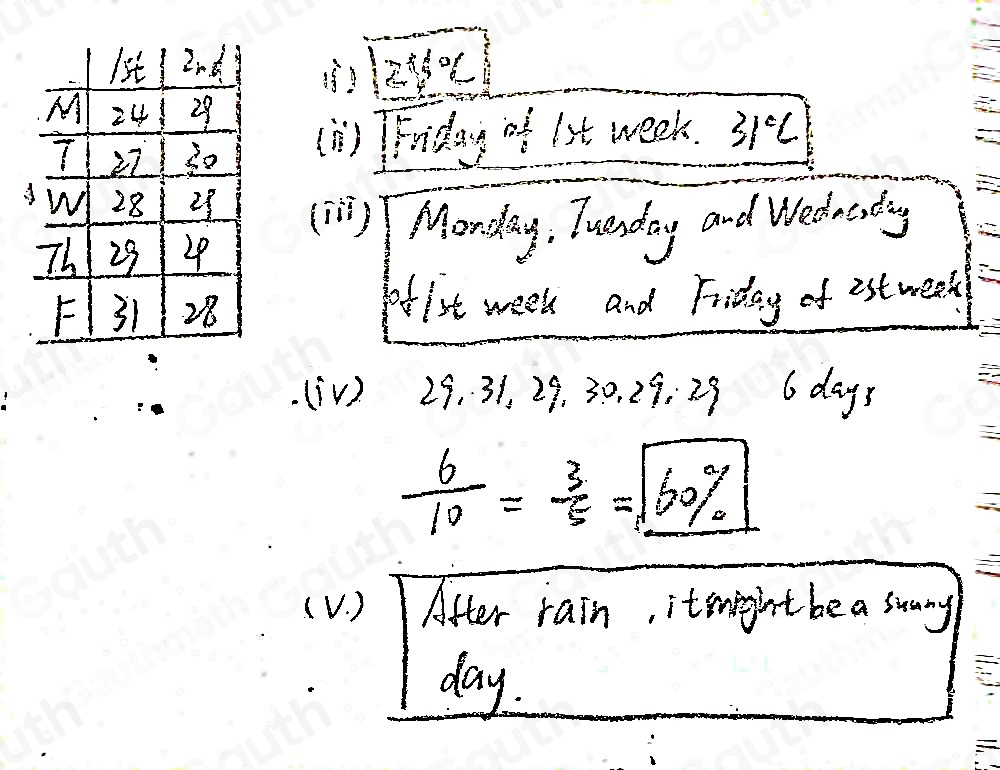 1st 2nd
M 24 29
T 27 30
W 28 29
Th 29 29
F 31 28
(i) °C
(ii) Friday of 1st week. 31°C
(iii) Monday, Tuesday and Wednesday
of 1st week and Friday of 2st week
(iv) 29, 31, 29, 30, 29, 29 6 days
6/10 = 3/5 = 60%
(V.) After rain, it might be a sunny
day.
Gauth
Gauthmath